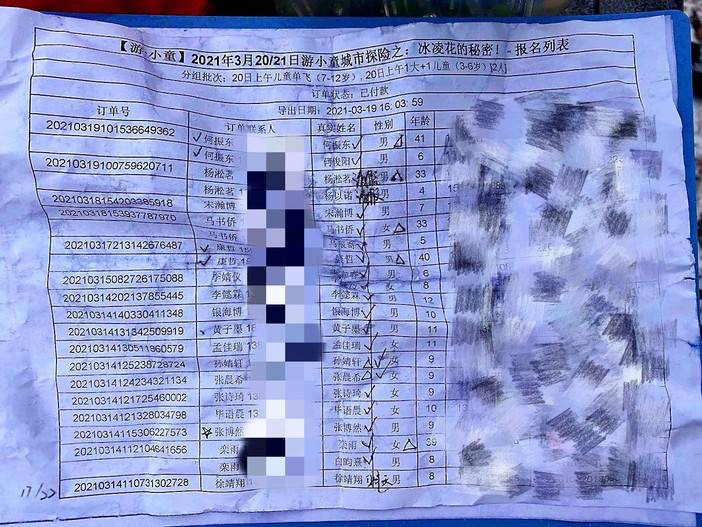 【游·小童】2021年3月20/21日游小童城市探险之：冰凌花的秘密！-报名列表
分组批次：20日上午儿童单飞(7-12岁)，20日上午1大+1儿童(3-6岁)[2人]
订单状态：已付款
导出日期：2021-03-19 16:03:59
订单号 订单联系人 真实姓名 性别 年龄
20210319101536649362 ✓何振东 何振东✓ 男△ 41
✓何振东 何悛阳✓ 男 6
20210319100759620711 杨淞茗 杨淞茗 男△ 33
杨淞茗 杨以诺 男 4
20210318154203385918 宋瀚博 宋瀚博✓ 男 7
20210318153937787970 马书侨 马书侨✓ 女△ 33
马书侨 男 5
20210317213142676487 ✓康哲 男△ 40
✓康哲 男 6
20210315082726175088 李婧仪 女 8
20210314202137855445 李懿霖 李懿霖✓ 男 12
20210314140330411348 银海博 银海博✓ 男 10
20210314131342509919 黄子墨 黄子墨✓ 男 11
20210314130511860579 孟佳瑞 孟佳瑞✓ 女 11
20210314125238728724 孙婧轩 孙婧轩 女 9
20210314124234321134 张晨希 张晨希 女 9
20210314121725460002 张诗琦 张诗琦✓ 女 9
20210314121328034798 毕语晨 毕语晨✓ 女 10
20210314115306227573 ☆张博然 张博然✓ 男 9
20210314112104641656 栾雨 栾雨✓ 女△ 39
栾雨 白昀熹✓ 男 8
20210314110731302728 徐靖翔 徐靖翔 男 8
17/